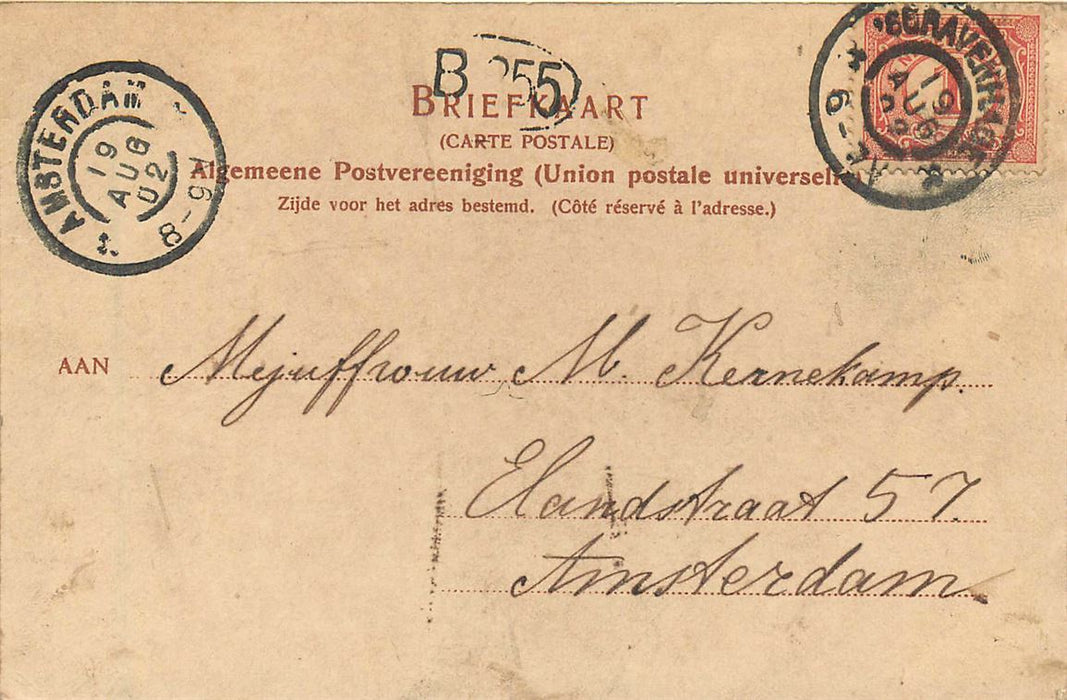 B 255
'SGRAVENHAGE
19
AUG
6-7V
AMSTERDAM
19
AUG
02
8-9V
BRIEFKAART
(CARTE POSTALE)
Algemeene Postvereeniging (Union postale universelle)
Zijde voor het adres bestemd. (Côté réservé à l'adresse.)
AAN Mejuffrouw M. Kernekamp.
Elandstraat 57.
Amsterdam.